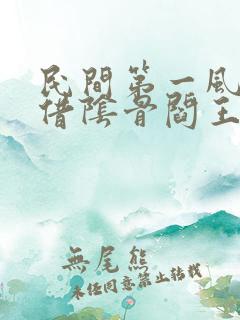 民間第一風
借陰骨閻王
無尾熊
未經同意禁止轉載